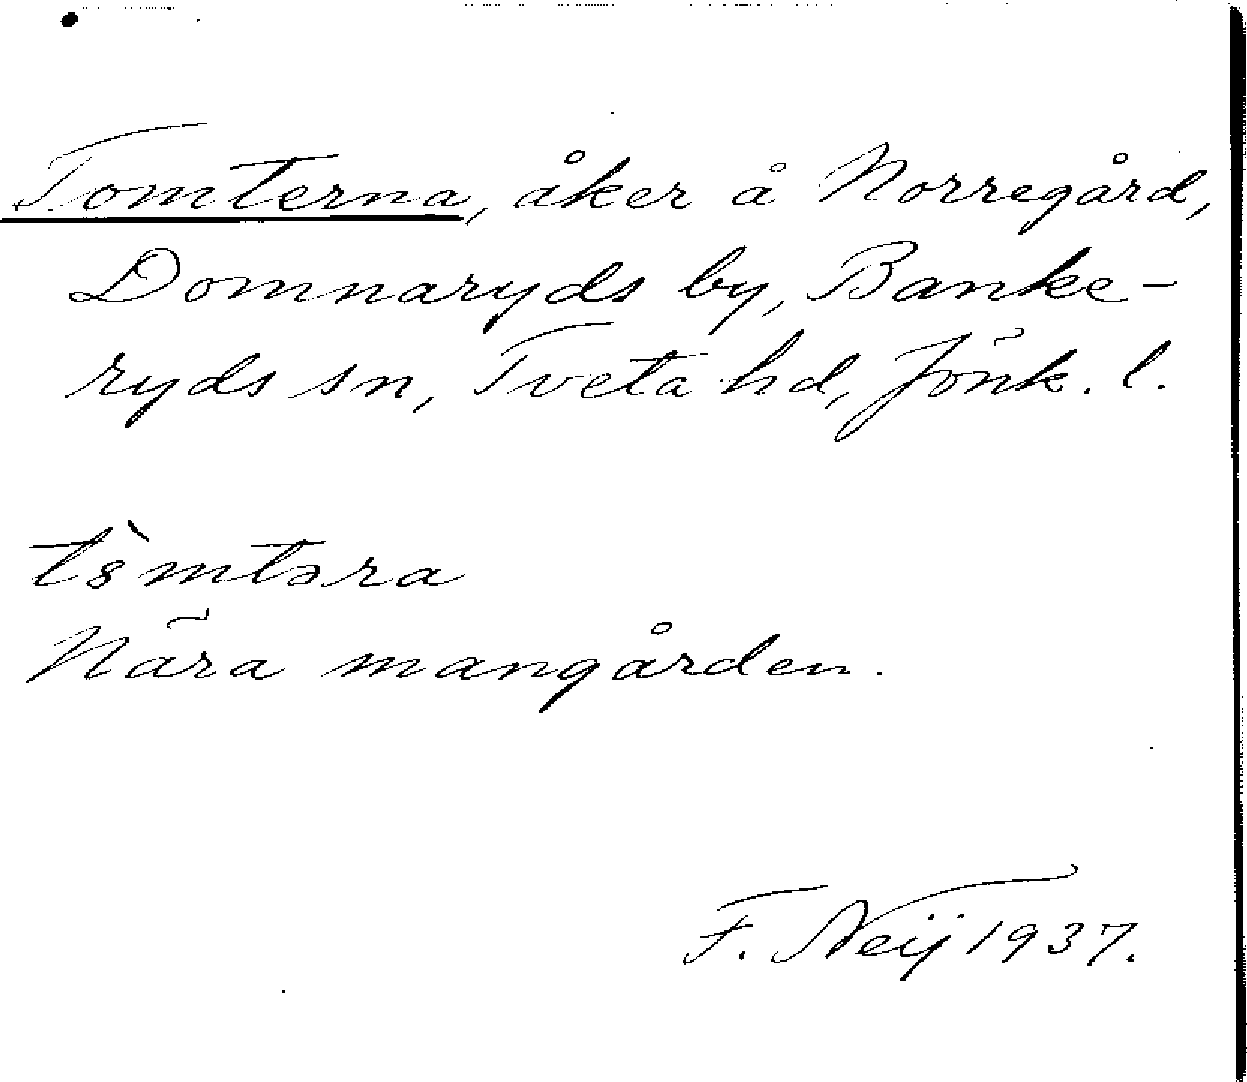 Tomterna, åker å Norregård,
Domnaryds by, Banke-
ryds sn, Tveta hd, Jönk. l.
Nära mangården.
F. Neij 1937.